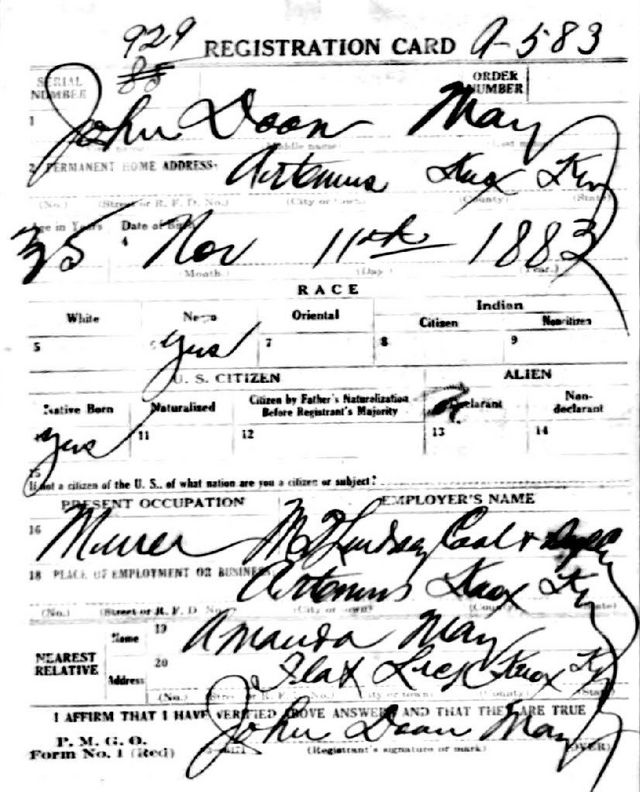 929
REGISTRATION CARD A-583
SERIAL NUMBER 88 ORDER NUMBER
1 John Doan May
Middle name
2 PERMANENT HOME ADDRESS: Artemus Knox Ky
(No.) (Street or R. F. D. No.) (City or town) (County) (State)
Age in Years Date of Birth
35 4 Nov 11th 1883
(Month.) (Day.) (Year.)
RACE
White Negro Oriental Indian
Citizen Noncitizen
5 6 yes 7 8 9
U. S. CITIZEN ALIEN
Native Born Naturalized Citizen by Father's Naturalization Before Registrant's Majority Declarant Non-declarant
10 yes 11 12 13 14
15
If not a citizen of the U. S., of what nation are you a citizen or subject?
PRESENT OCCUPATION EMPLOYER'S NAME
16 Miner Lindsay Coal +
18 PLACE OF EMPLOYMENT OR BUSINESS: Artemus Knox Ky
(No.) (Street or R. F. D. No.) (City or town) (County) (State)
NEAREST RELATIVE Name 19 Amanda May
Address 20 Flat Lick Knox Ky
(No.) (Street or R. F. D. No.) (City or town) (County) (State)
I AFFIRM THAT I HAVE VERIFIED ABOVE ANSWERS AND THAT THEY ARE TRUE
P. M. G. O.
Form No. 1 (Red) John Doan May
(Registrant's signature or mark) (OVER)